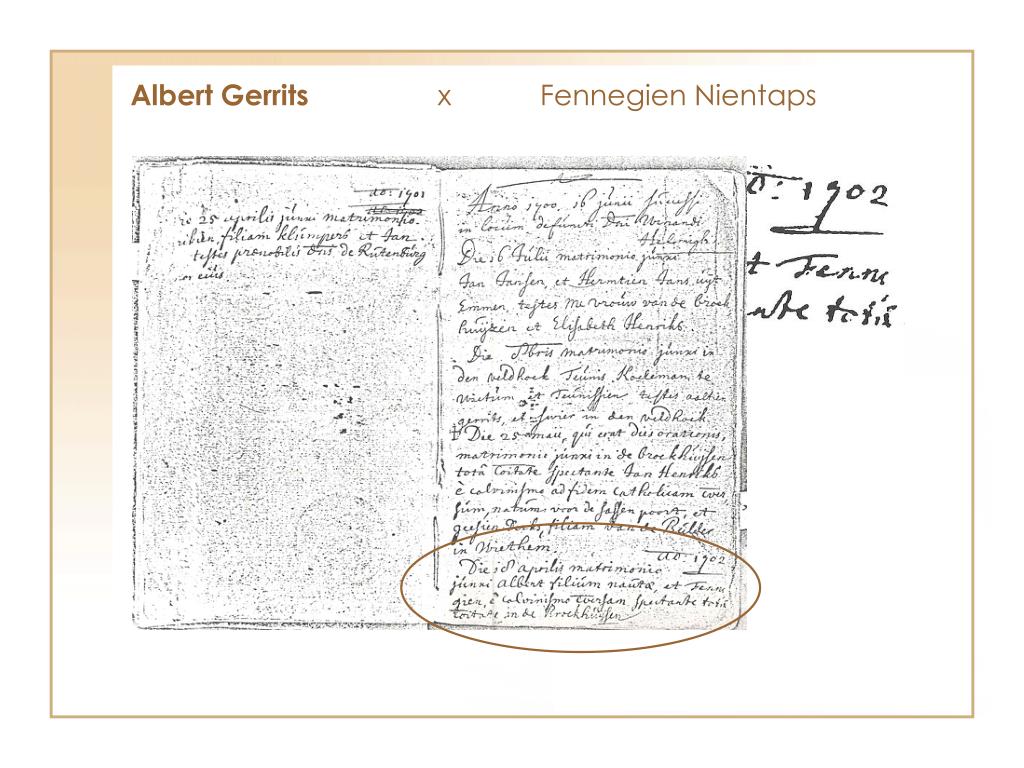 Albert Gerrits x Fennegien Nientaps
ao: 1901
25 aprilis junxi matrimonio
filiam klumpers et Jan
testes prænobilis Dns de Rutenburg
Anno 1900. 16 junii successi
in locum defuncti Dni Winandi
Die 16 Julii matrimonio junxi
Jan Jansen, et Hermtien Jans, uyt
Emmen, testes Me vrouw van de broek
huyzen et Elisabeth Henriks.
Die matrimonio junxi in
den veldhoek Teunis Koeleman, te
et Teunissen testes aaltien
gerrits, et in den veldhoek
Die 25 maii, qui erat dies orationis,
matrimonio junxi in de broekhuysen
totâ spectante Jan Henriks
è calvinismo ad fidem catholicam
sum, natum voor de sassen poort, et
filiam van de Rulder
in Wrethem.
ao: 1902
Die 18 aprilis matrimonio
junxi Albert filium nautæ, et Fenne
gien, è calvinismo versam spectante totâ
in de Broekhuysen
o: 1902
t Fenne
nte totâ